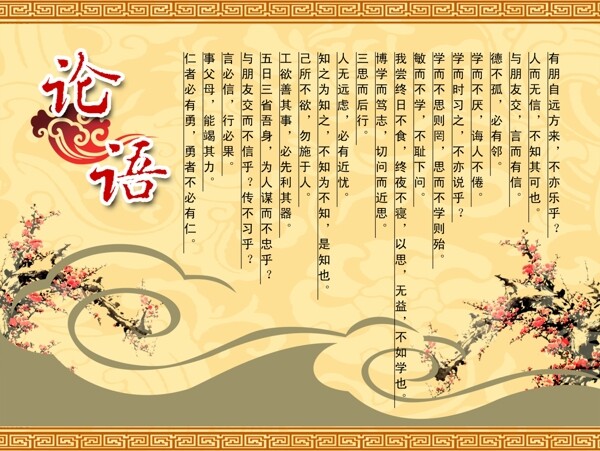 论语
有朋自远方来，不亦乐乎？
人而无信，不知其可也。
与朋友交，言而有信。
德不孤，必有邻。
学而不厌，诲人不倦。
学而时习之，不亦说乎？
学而不思则罔，思而不学则殆。
敏而不学，不耻下问。
我尝终日不食，终夜不寝，以思，无益，不如学也。
博学而笃志，切问而近思。
三思而后行。
人无远虑，必有近忧。
知之为知之，不知为不知，是知也。
己所不欲，勿施于人。
工欲善其事，必先利其器。
五日三省吾身，为人谋而不忠乎？
与朋友交而不信乎？传不习乎？
言必信，行必果。
事父母，能竭其力。
仁者必有勇，勇者不必有仁。